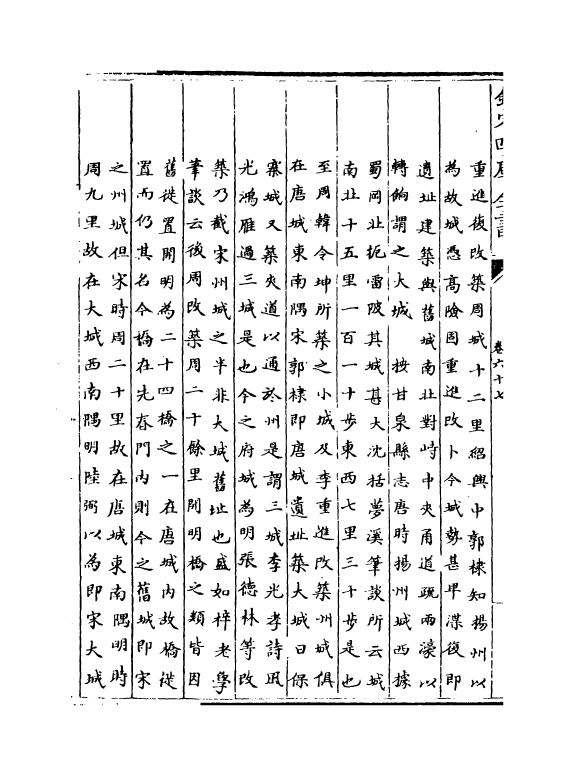 欽定四庫全書
卷六十七
重進復改築周城十二里紹興中郭棣知揚州以
為故城憑高險固重進改卜今城勢甚卑渫復即
遺址建築與舊城南北對峙中夾甬道疏兩濠以
轉餉謂之大城　按甘泉縣志唐時揚州城西據
蜀岡北扼雷陂其城甚大沈括夢溪筆談所云城
南北十五里一百一十步東西七里三十步是也
至周韓令坤所築之小城及李重進改築州城俱
在唐城東南隅宋郭棣即唐城遺址築大城曰保
寨城又築夾道以通於州是謂三城李光孝詩風
光鴻雁過三城是也今之府城為明張德林等改
築乃截宋州城之半非大城舊址也盛如梓老學
筆談云後周改築周二十餘里開明橋之類皆因
舊徙置開明為二十四橋之一在唐城内故橋從
置而仍其名今橋在先春門内則今之舊城即宋
之州城但宋時周二十里故在唐城東南隅明時
周九里故在大城西南隅明陸弼以為即宋大城